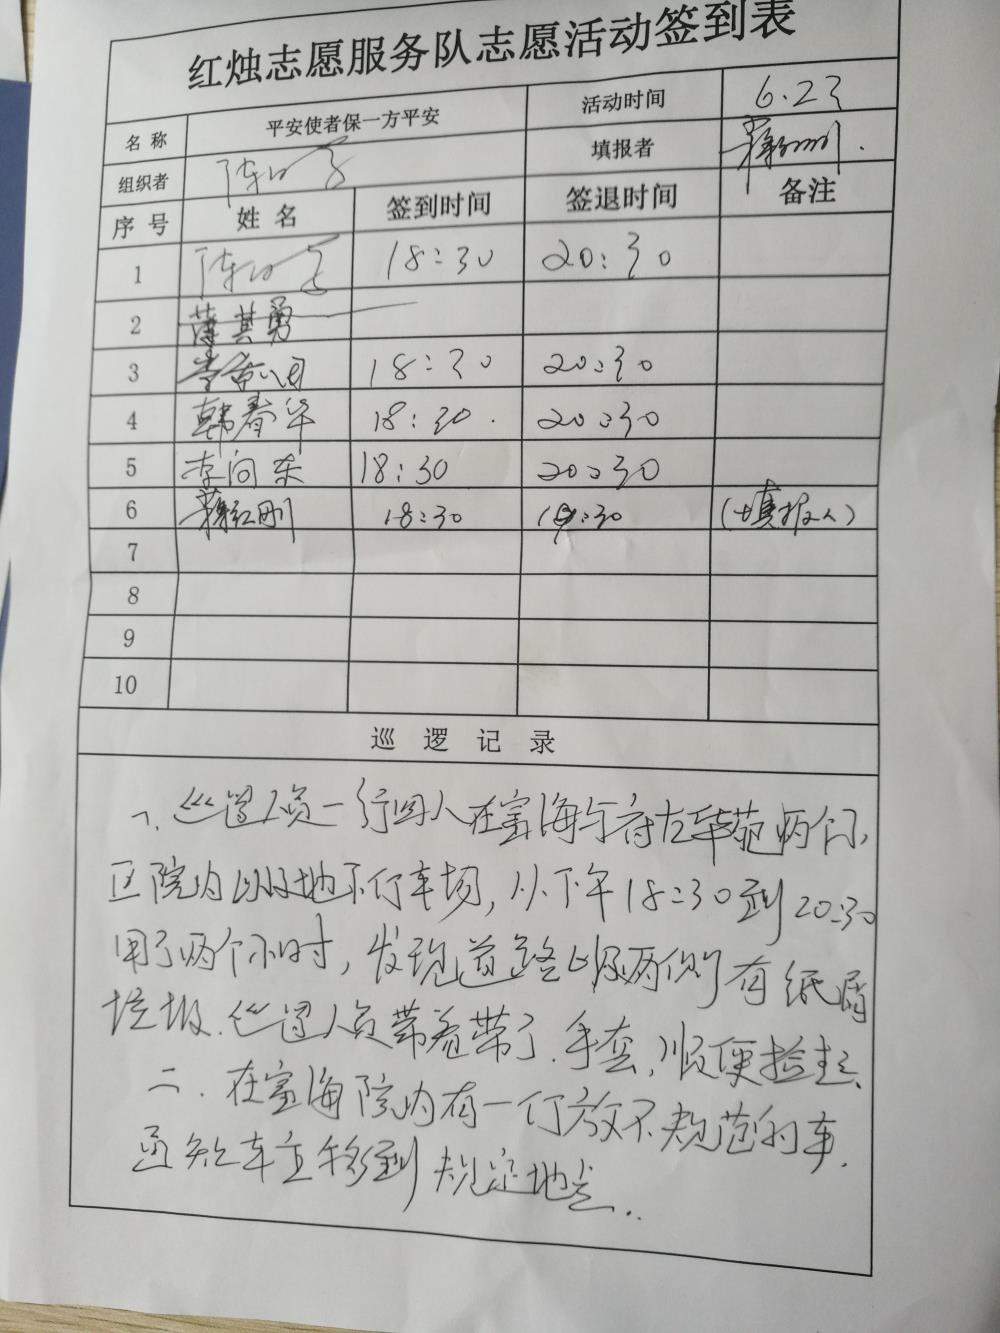 红烛志愿服务队志愿活动签到表
名 称 平安使者保一方平安 活动时间 6.23
组织者 填报者
序 号 姓 名 签到时间 签退时间 备注
1 18:30 20:30
2 其勇
3 18:30 20:30
4 韩春华 18:30. 20:30
5 李向东 18:30 20:30
6 红刚 18:30 19:30 (填报人)
7
8
9
10
巡 逻 记 录
一、巡逻人员一行四人在富海与府左华苑两个小
区院内以及地下停车场，从下午18:30到20:30
用了两个小时，发现道路以及两侧有纸屑
垃圾.巡逻人员带着带了.手套，顺便捡
二.在富海院内有一停放不规范的车.
通知车主移到规定地点..